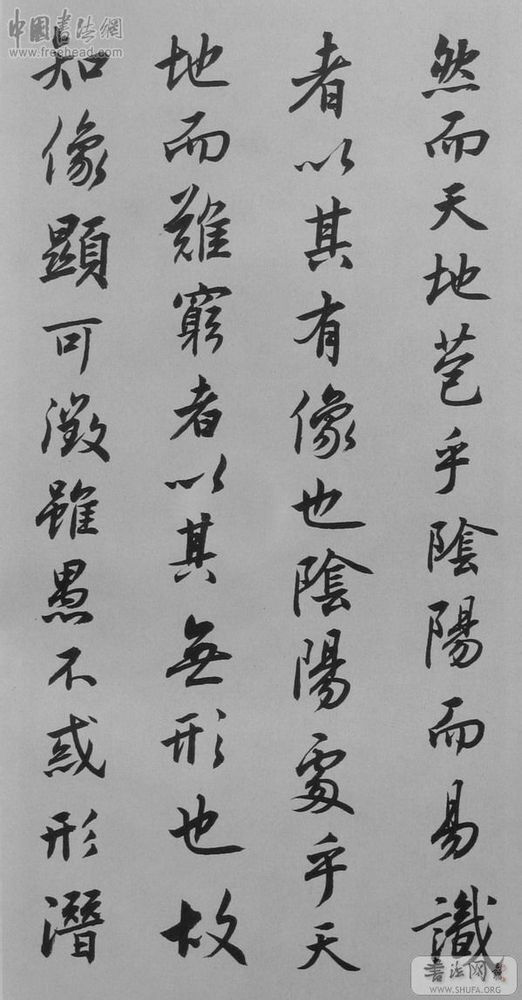 然而天地苞乎陰陽而易識
者以其有像也陰陽處乎天
地而難窮者以其無形也故
知像顯可徵雖愚不惑形潛
中國書法網
www.freehead.com
書法网
WWW.SHUFA.ORG